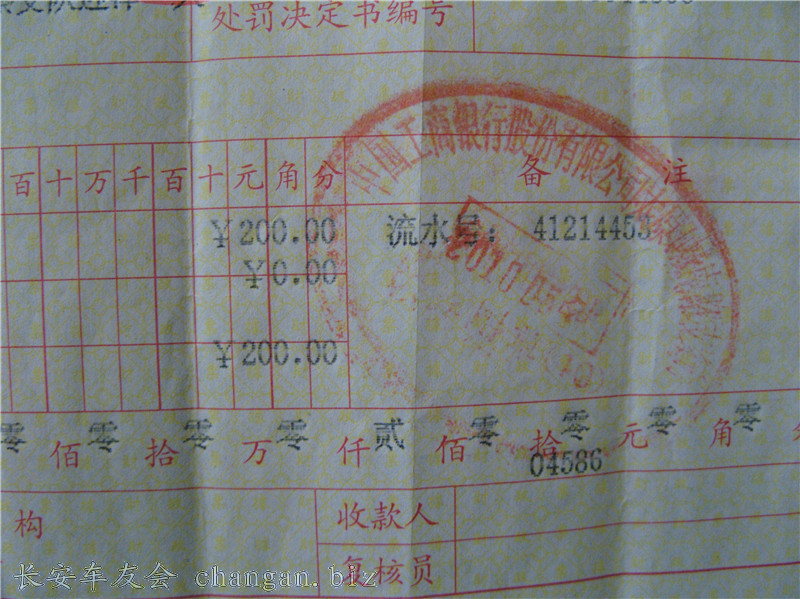 处罚决定书编号
百 十 万 千 百 十 元 角 分 备 注
¥200.00 流水号: 41214453
¥0.00
¥200.00
中国工商银行股份有限公司
零 佰 零 拾 零 万 零 仟 贰 佰 零 拾 零 元 零 角 零
04586
构 收款人
复核员
长安车友会 changan.biz